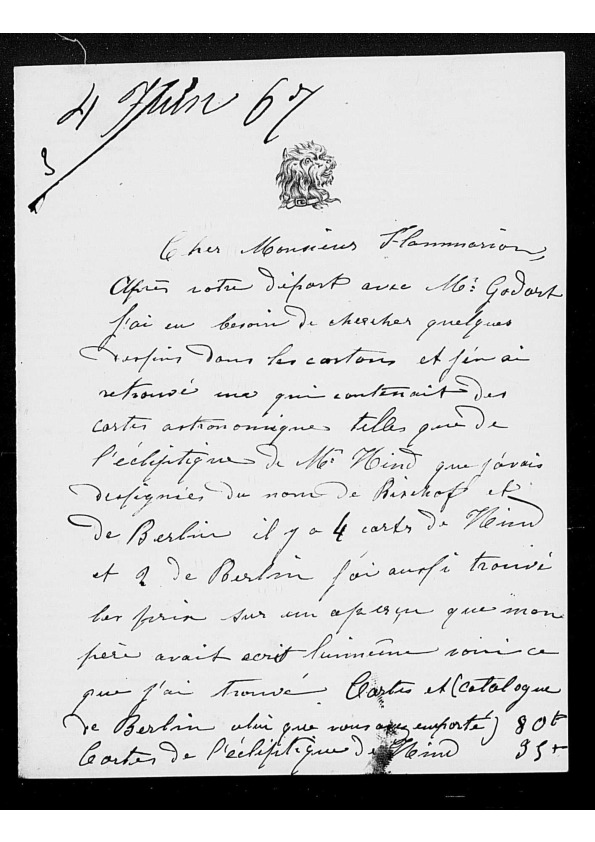 4 Juin 67
3
Cher Monsieur Flammarion,
Après votre départ avec Mr. Godart
j'ai eu besoin de chercher quelques
dessins dans les cartons et j'en ai
retrouvé une qui contenait des
cartes astronomiques telles que de
l'écliptique de Mr Hind que j'avais
designiés du nom de Bischoff et
de Berlin il y a 4 carts de Hind
et 2 de Berlin j'ai aussi trouvé
les prix sur un aperçu que mon
père avait ecrit luimême voici ce
que j'ai trouvé Cartes et (catalogue
de Berlin celui que vous avez emporté) 80f
Cartes de l'écliptique de Hind 35f